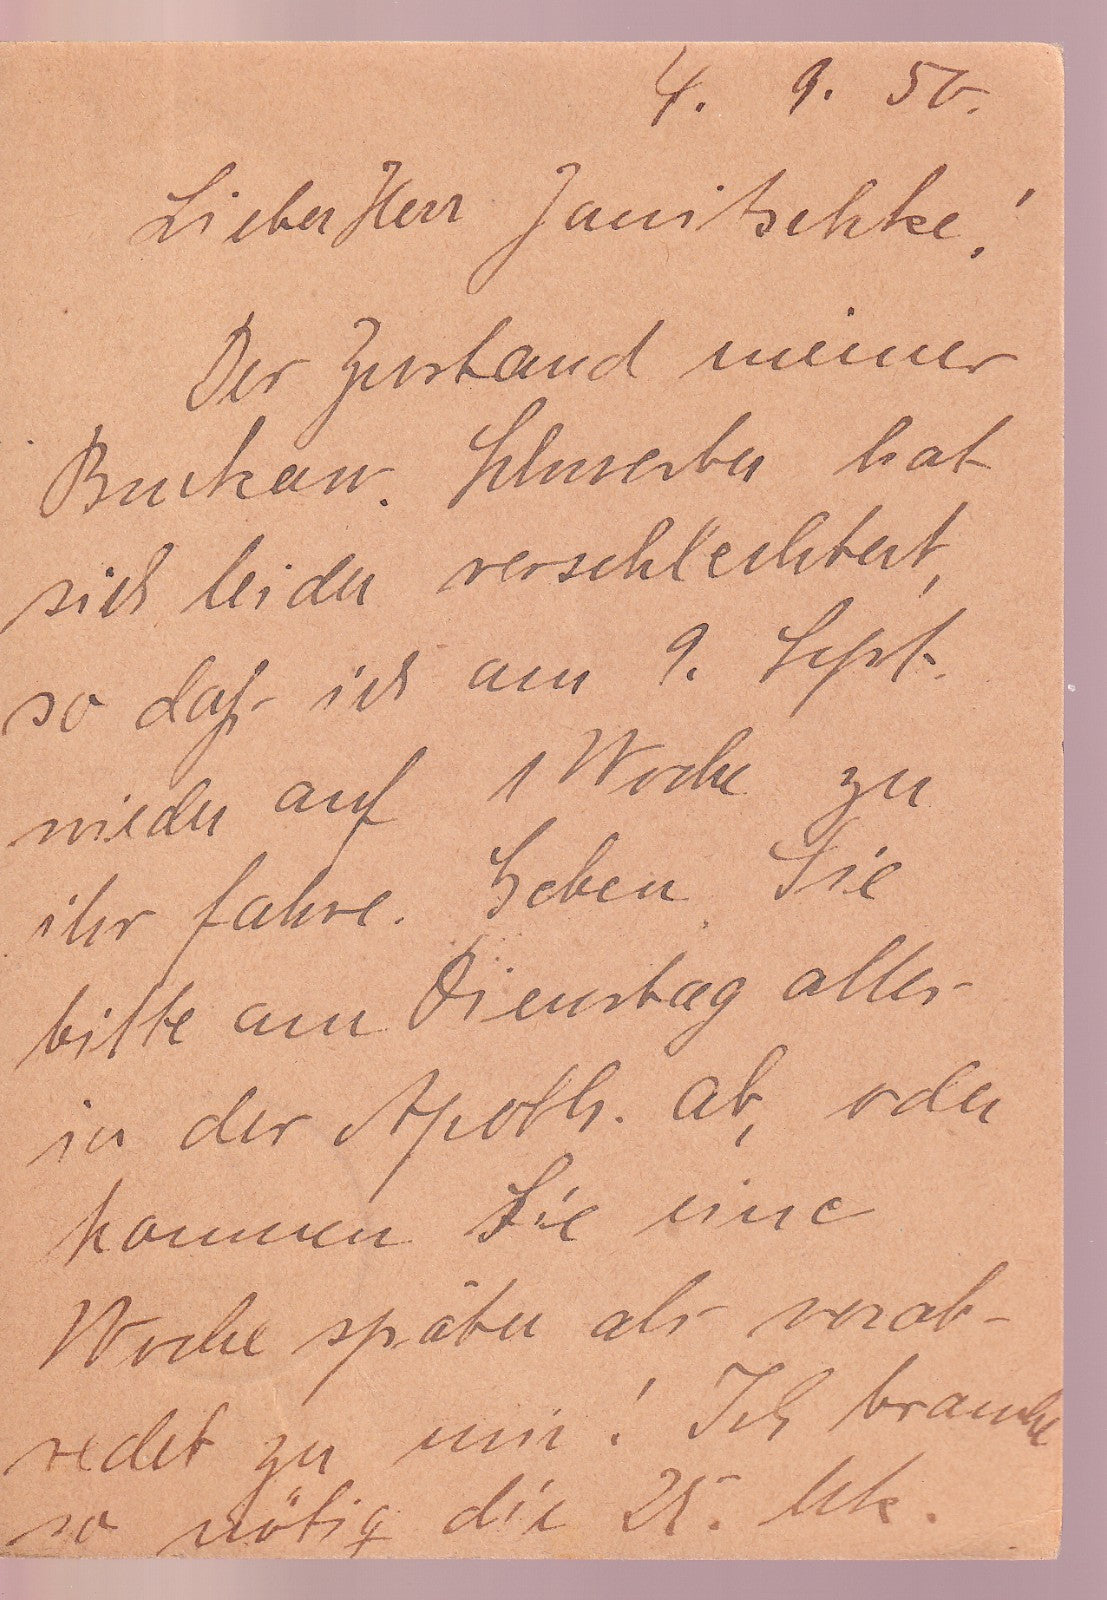 4. 9. 50.
Lieber Herr Janitschke!
Der Zustand meiner
Buckow. Schwester hat
sich leider verschlechtert,
so daß ich am 9. Sept.
wieder auf 1 Woche zu
ihr fahre. Geben Sie
bitte am Dienstag alles
in der Apoth. ab, oder
kommen Sie eine
Woche später als verab-
redet zu mir! Ich brauche
so nötig die 25. Mk.